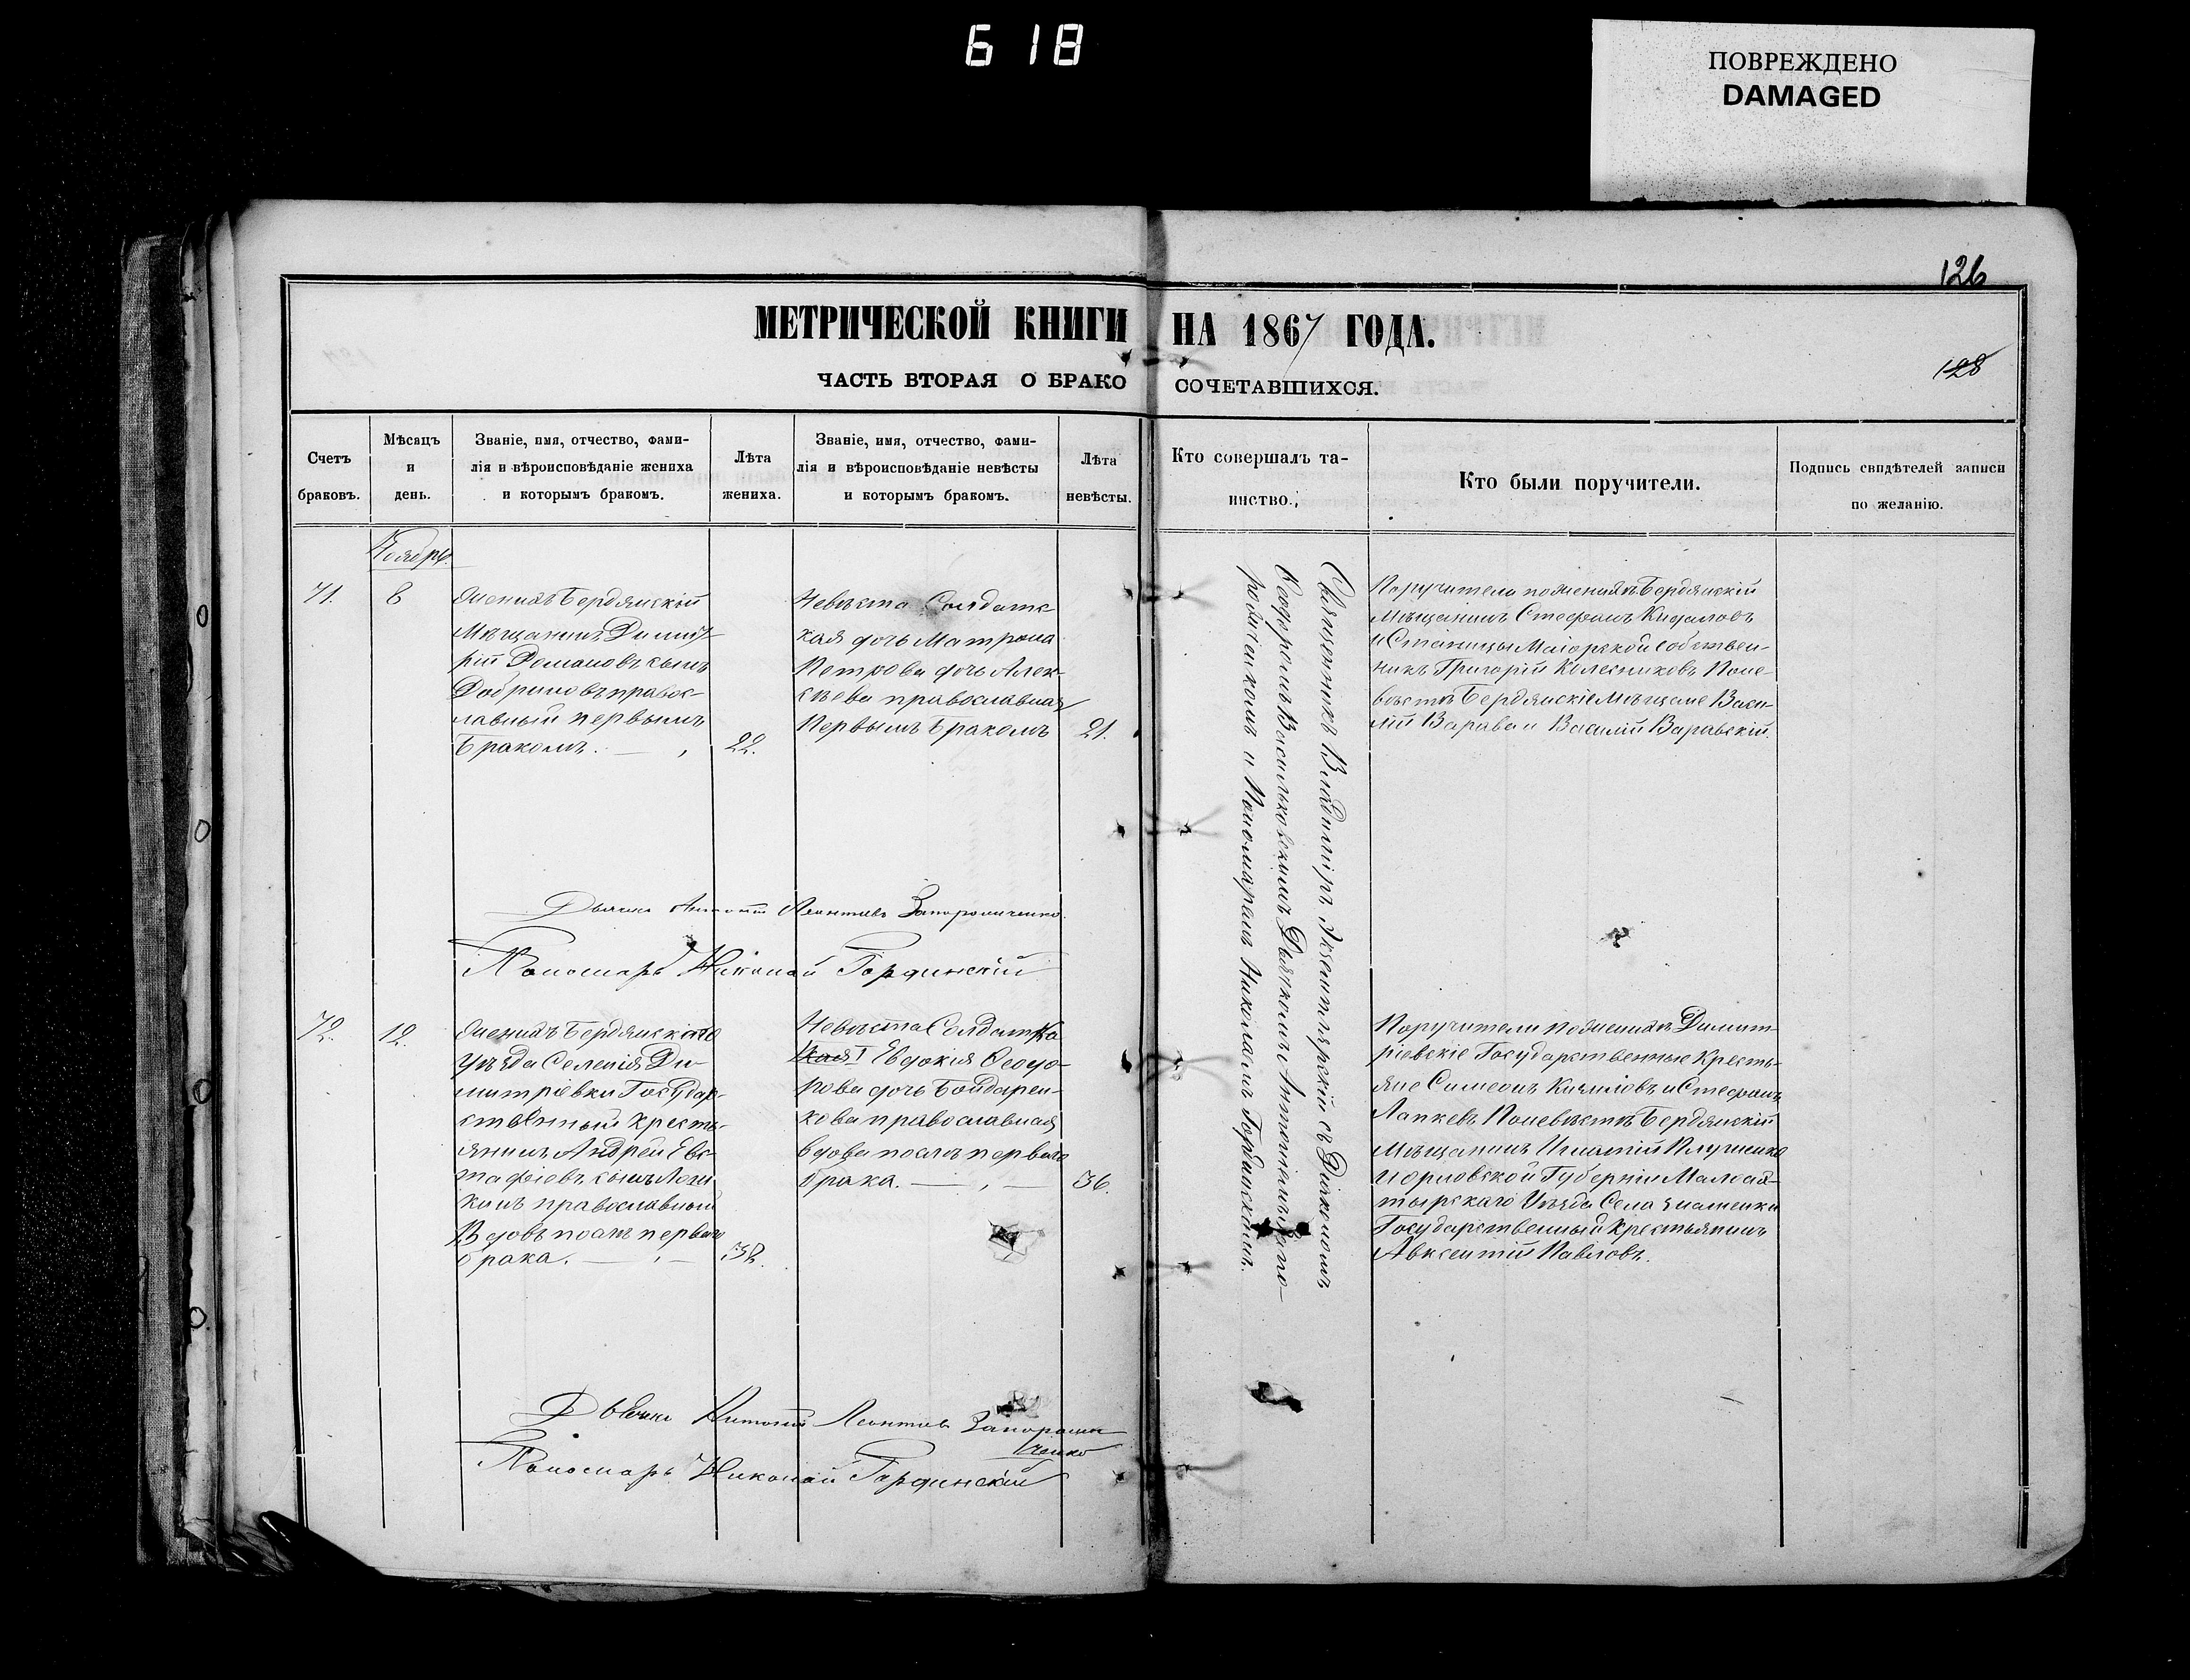 618
ПОВРЕЖДЕНО
DAMAGED
126
МЕТРИЧЕСКОЙ КНИГИ НА 1867 ГОДА.
ЧАСТЬ ВТОРАЯ О БРАКО СОЧЕТАВШИХСЯ.
128
Счетъ браковъ.
Мѣсяцъ и день.
Званіе, имя, отчество, фами-
лія и вѣроисповѣданіе жениха
и которымъ бракомъ.
Лѣта жениха.
Званіе, имя, отчество, фами-
лія и вѣроисповѣданіе невѣсты
и которымъ бракомъ.
Лѣта невѣсты.
Кто совершалъ та-
инство.
Кто были поручители.
Подпись свидѣтелей записи
по желанію.
Ноябрь.
71.
Женихъ Бердянскій
Мѣщанинъ Димит-
рій Романовъ сынъ
Добриновъ правос-
лавный первымъ
бракомъ.
22.
Невѣста Солдатс-
кая дочь Матрона
Петрова дочь Алек-
сѣева православная
Первымъ бракомъ
21.
Священникъ Владиміръ Экземплярскій съ Діакономъ
Феодоромъ Васильковскимъ Дьячкомъ Антоніемъ Запо-
рожченкомъ и Пономаремъ Николаемъ Гординскимъ.
Поручители по женихѣ Бердянскій
Мѣщанинъ Стефанъ Кидаловъ
и Станицы Маіорской собствен-
никъ Григорій Колесниковъ По не-
вѣстѣ Бердянскіе Мѣщане Васи-
лій Варава и Василій Варавскій.
Дьячекъ Антоній Леонтьевъ Запорожченко.
Пономарь Николай Гординскій
72.
12.
Женихъ Бердянскаго
Уѣзда Селенія Ди-
митріевки Государ-
ственный кресть-
янинъ Андрей Евс-
тафіевъ сынъ
кинъ православный
Вдовъ послѣ перваго
брака.
38.
Невѣста Солдатка
Евдокія Феодо-
рова дочь Бондарен-
кова православная
вдова послѣ перваго
брака.
36.
Поручители по женихѣ Димит-
ріевскіе Государственные Кресть-
яне Симеонъ и Стефанъ
Лапкевъ По невѣстѣ Бердянскій
Мѣщанинъ Игнатій
и Орловской Губерніи Малоар-
Уѣзда Села Знаменки
Государственный крестьянинъ
Авксентій Павловъ.
Дьячекъ Антоній Леонтьевъ Запорож-
ченко
Пономарь Николай Гординскій